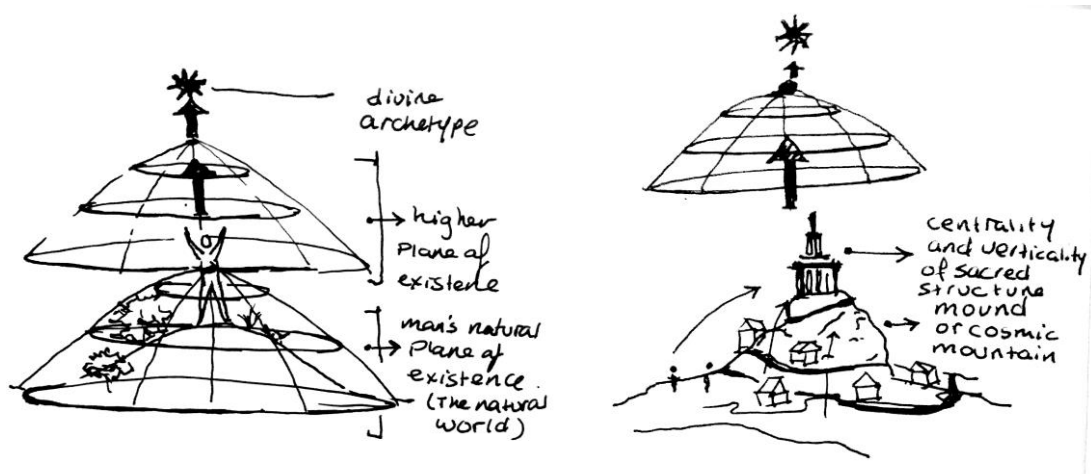 divine
archetype
higher
Plane of
existence
man's natural
Plane of
existence.
(The natural
world)
centrality
and verticality
of sacred
structure
mound
or cosmic
mountain